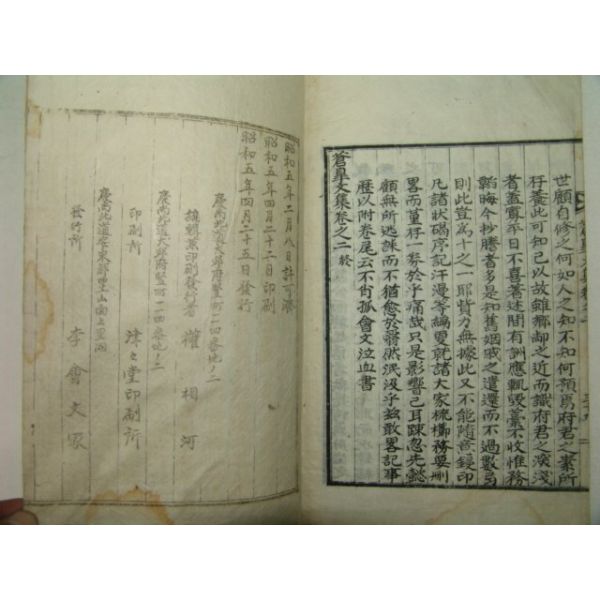 世顧自修之何如人之知不知何預爲府君之素所
存養此可知已以故雖鄕鄰之近而識府君之深淺
者盖寡平日不喜著述間有訓應輒毁藁不收惟務
韜晦今抄謄者多是知舊姻戚之遺還而不過數弓
則此豈爲十之一耶貲力無據此又不能隨意鋟印
凡諸狀碣序記汗漫等編更就諸大家梳櫛務要刪
畧而藁存一於乎痛哉只是影響已耳踈忽先懿
顧無所逃誅而不猶愈於泯沒乎玆敢畧記事
歷以附卷尾云不肖孤會文泣血書
蒼皐文集卷之二 終
昭和五年二月八日許可濟
昭和五年四月二十二日印刷
昭和五年四月二十五日發行
慶尙北道大邱府豎町一二四番地ノ二
編輯兼印刷發行者 權相河
慶尙北道大邱府豎町一二四番地ノ二
印刷所 堂印刷所
慶尙北道安東郡豊山面上里洞
發行所 李會文家